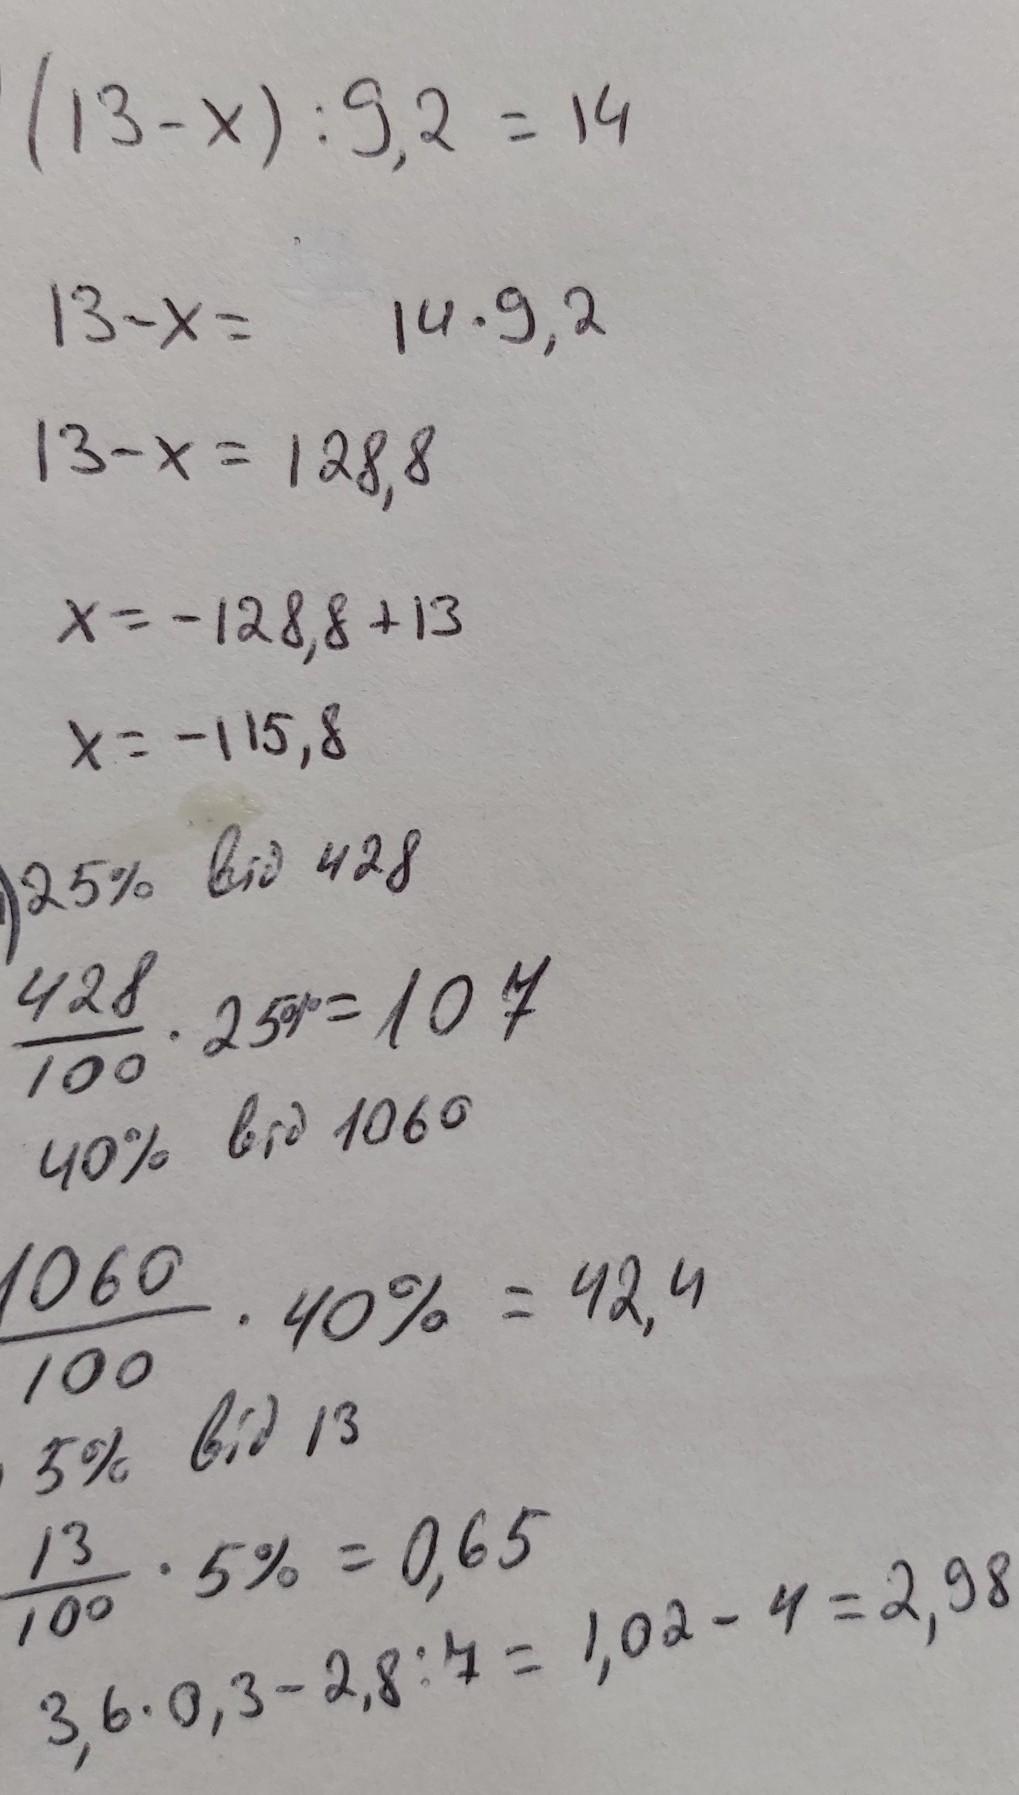 (13-x):9,2=14
13-x= 14·9,2
13-x=128,8
x=-128,8+13
x=-115,8
)25% від 428
428/100 · 25%=107
40% від 1060
1060/100 · 40% = 42,4
5% від 13
13/100 · 5% = 0,65
3,6·0,3-2,8:7= 1,02-4=2,98